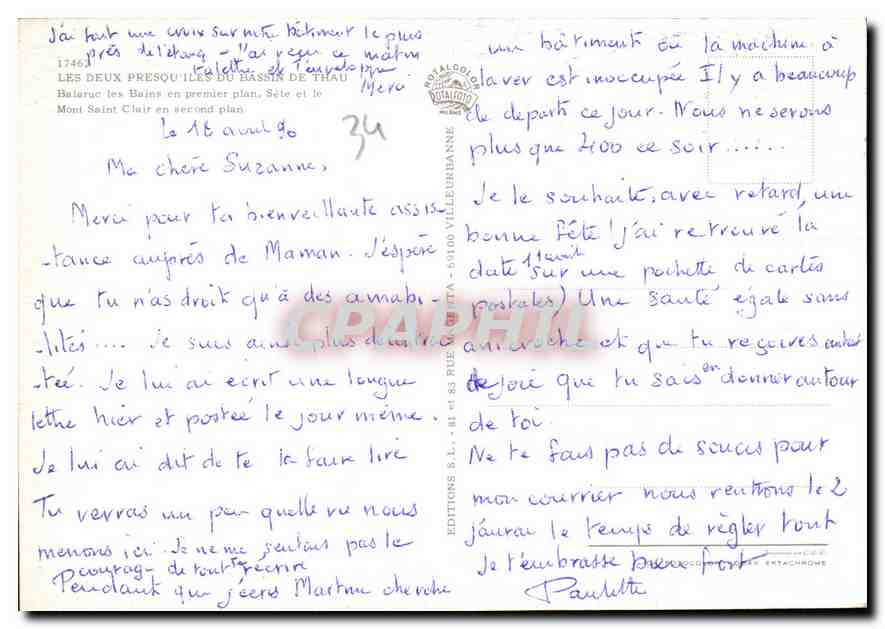 J'ai fait une croix sur notre bâtiment le plus
près de l'étang - J'ai reçu ce matin
ta lettre et l'enveloppe
Merci
17467
LES DEUX PRESQU'ILES DU BASSIN DE THAU
Balaruc les Bains en premier plan, Sète et le
Mont Saint Clair en second plan
ROTALCOLOR
ROTALFOTO
MILANO
le 18 avril 90
34
Ma chère Suzanne,
Merci pour ta bienveillante assis-
-tance auprès de Maman. J'espère
que tu n'as droit qu'à des amabi-
-lités.... Je suis ainsi plus
-tée. Je lui ai écrit une longue
lettre hier et postée le jour même.
Je lui ai dit de te la faire lire
Tu verras un peu quelle vie nous
menons ici. Je ne me sentais pas le
courage de tout te réécrire
Pendant que j'écris Martine cherche
EDITIONS S.L., - 81 et 83 RUE MAGENTA - 69100 VILLEURBANNE
un bâtiment où la machine à
laver est inoccupée Il y a beaucoup
de départ ce jour. Nous ne serons
plus que 400 ce soir......
Je te souhaite, avec retard, une
bonne Fête! J'ai retrouvé la
date 11 avril sur une pochette de cartes
postales) Une santé égale sans
anicroche et que tu reçoives autant
de joie que tu sais en donner autour
de toi.
Ne te fais pas de soucis pour
mon courrier nous rentrons le 2
j'aurai le temps de régler tout
Je t'embrasse bien fort
EKTACHROME
Paulette
CPAPHIL